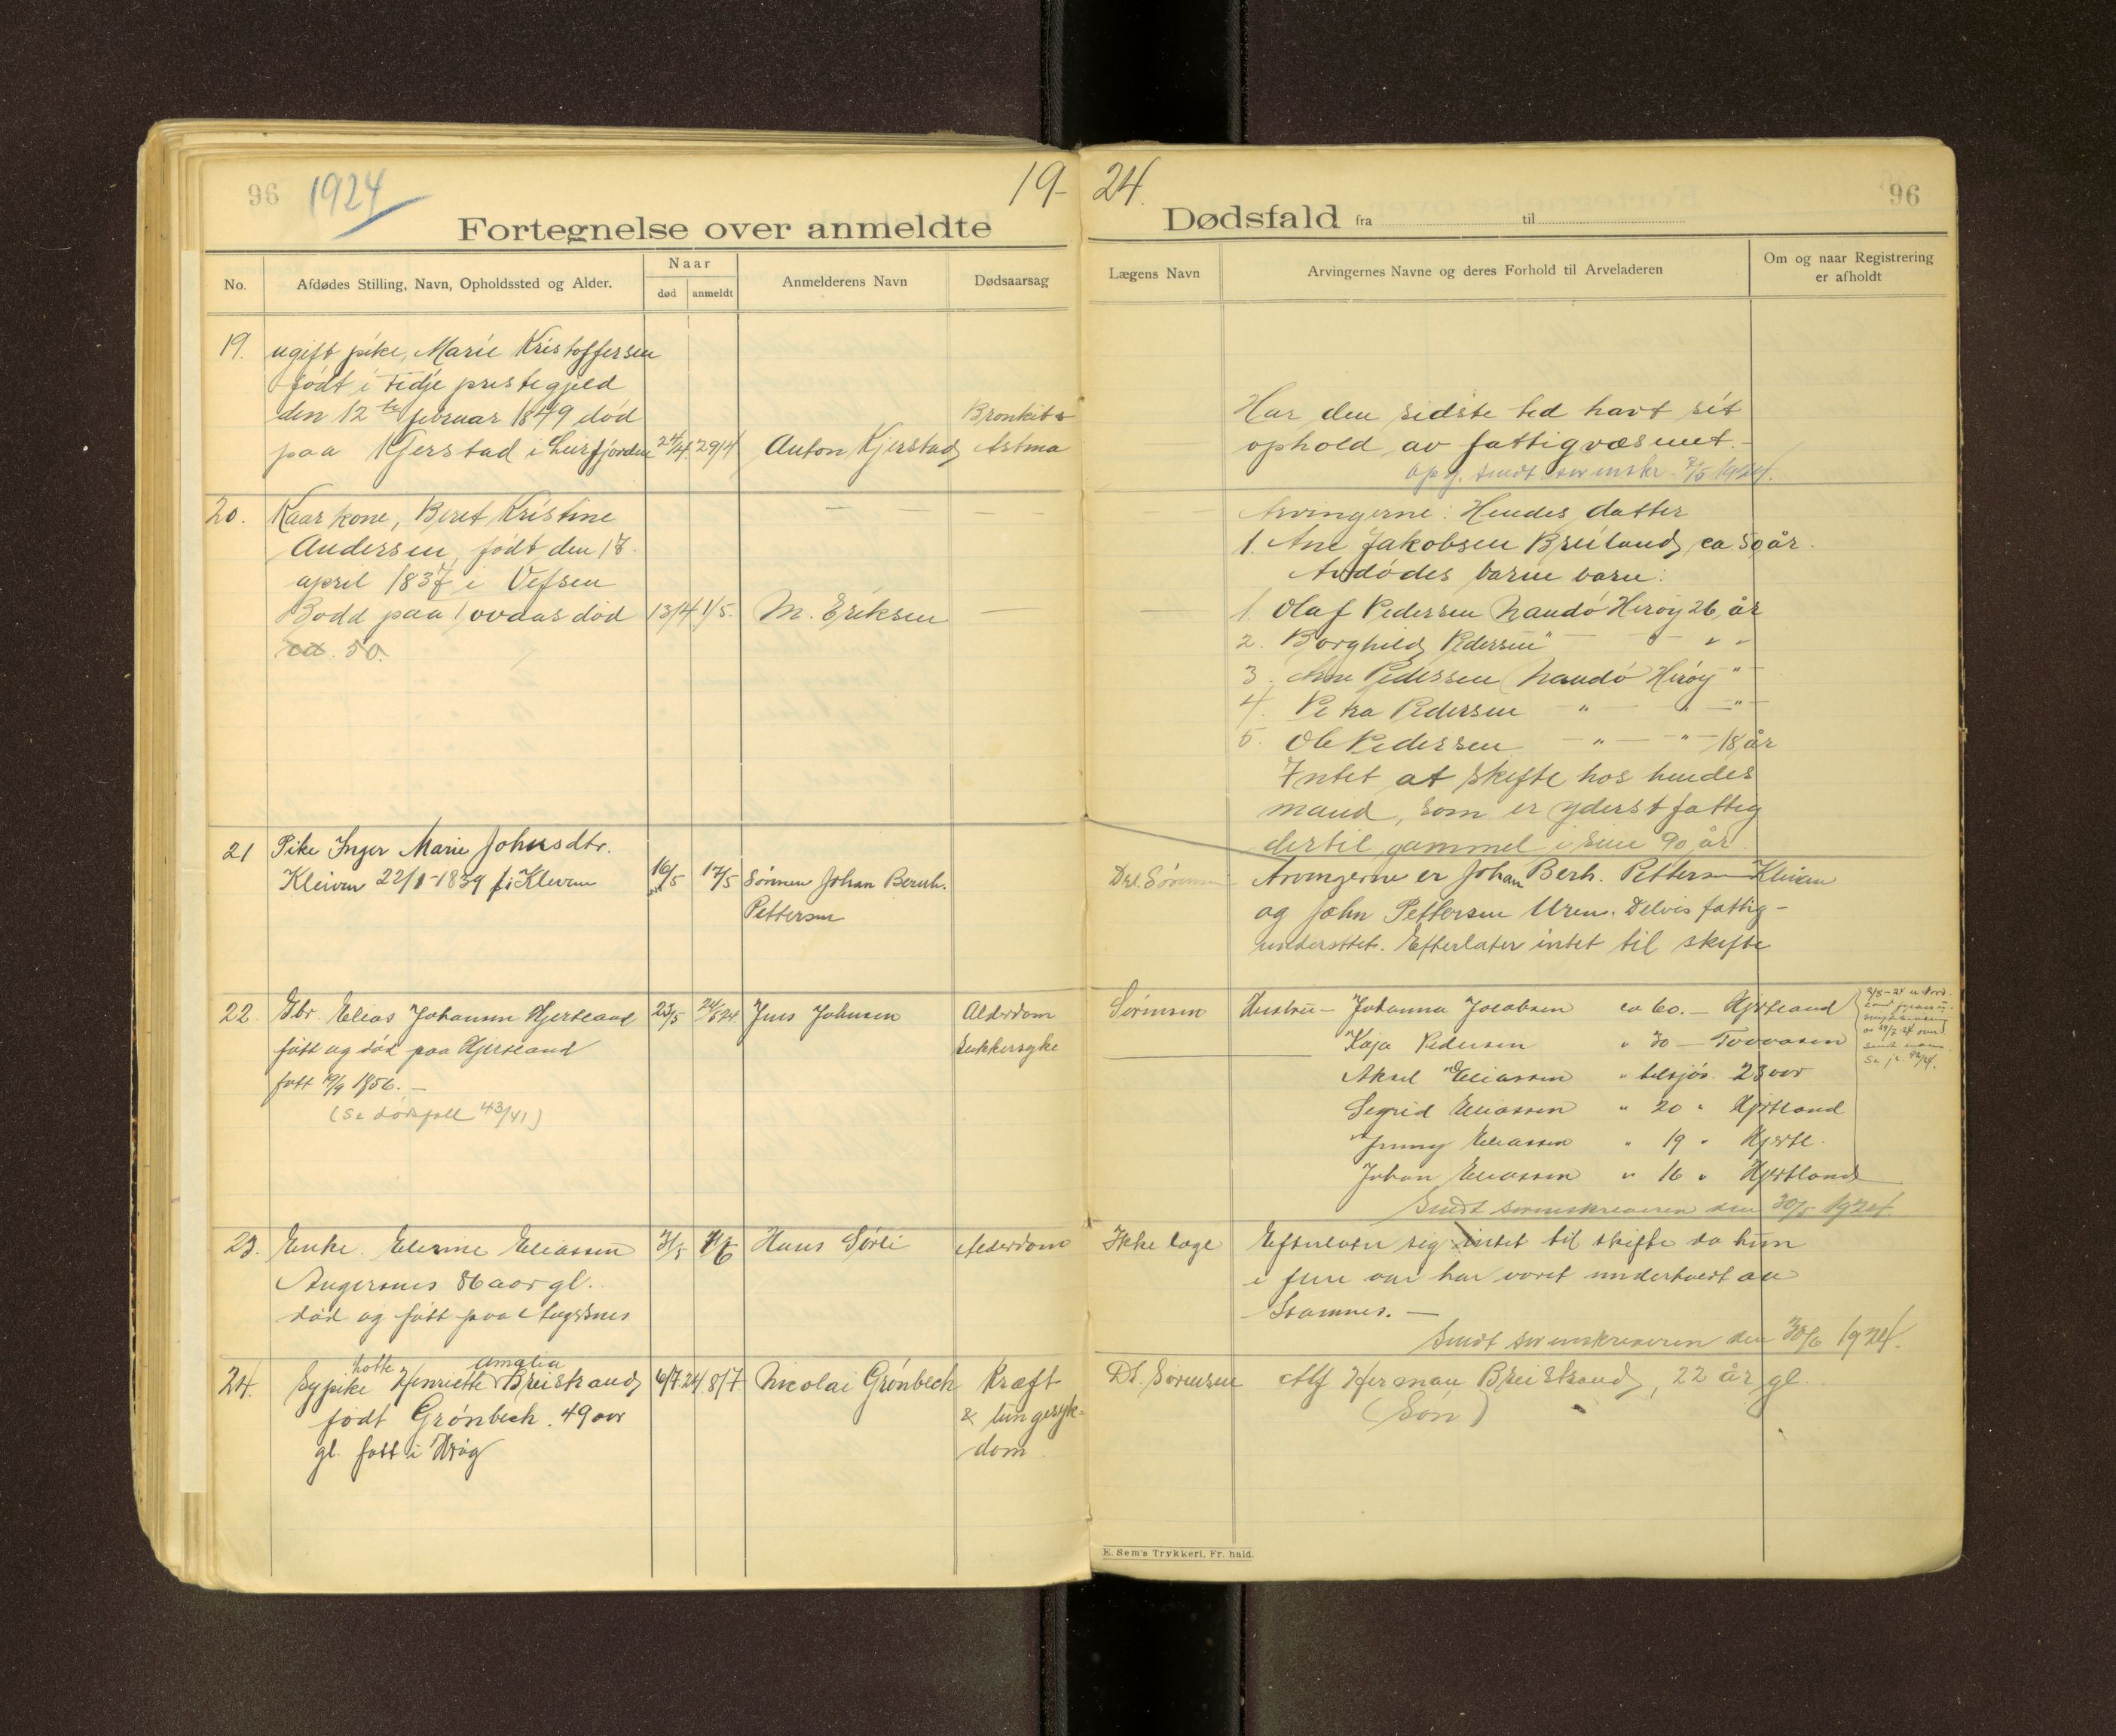 96 1924 19- 24. 96
Fortegnelse over anmeldte Dødsfald fra til
No. Afdødes Stilling, Navn, Opholdssted og Alder. Naar død anmeldt Anmelderens Navn Dødsaarsag Lægens Navn Arvingernes Navne og deres Forhold til Arveladeren Om og naar Registrering er afholdt
19. ugift pike, Marie Kristoffersen
født i Fidje prestegjeld
den 12te februar 1849 død
paa Kjerstad i 24/4. 29/4 Anton Kjerstad
Bronkit &
Astma
Har den sidste tid havt sit
ophold av fattigvæsenet.
opg. sendt sorenskr. 7/5 1924.
20. Kaarkone, Beret Kristine
Andersen, født den 18.
april 1837 i Vefsen
Bodd paa død 13/4 1/5. M. Eriksen —
50.
Arvingerne: Hendes datter
1. Ane Jakobsen Breiland, ca 50 år.
Avdødes barne barn:
1. Olaf Pedersen Nandö Herøy 26 år
2. Borghild Pedersen " — " "
3. Ane Pedersen Nandö Herøy "
4. Petra Pedersen " " "
5. Ole Pedersen — " — " — 18 år
Intet at skifte hos hendes
mand, som er yderst fattig
dertil gammel i sine 90 år.
21 Pike Inger Marie Johnsdtr.
Kleiven 22/1-1839 f i Kleven 16/5 17/5 Sönnen Johan Bernh.
Pettersen
Arvingerne er Johan Berh. Pettersen Kleiven
og John Pettersen Uren. Delvis fattig-
understtet. Efterlater intet til skifte
22. Gbr. Elias Johansen Hjertland 23/5 24/5 24. Jens Johnsen Alderdom Sørensen
født og död paa Hjertland Sukkersyke
født 19/9 1856. —
(Se dödsfall 43/41)
Hustru — Johanna Jacobsen ca 60. — Hjertland
Kaja Pedersen " 30 — Tovaasen
Aksel Eliassen " tilsjös. 23 aar
Segrid Eliassen " 20 " Hjertland
Jenny Eliassen " 19 " Hjertl.
Johan Eliassen " 16 " Hjertland
Sendt sorenskriveren den 30/5 1924.
23. Enke. Elerine Eliassen 31/5 11/6 Hans Sørli Alderdom Ikke læge
Angersnes 86 aar gl.
död og født paa Angersnes
Efterlater sig intet til skifte da hun
i flere aar har været underholdt av
Stamnes. —
Sendt sorenskriveren den 30/6 1924.
24. Sypike Lotte Henriette Amalia Breistrand 6/7 24 8/7 Nicolai Grønbech Kræft Dr. Sörensen
født Grønbech. 49 aar & lungesyk-
gl. født i Herøy dom.
Alf Herman Breistrand, 22 år gl.
(Søn)
E. Sem's Trykkeri, Fr. hald.